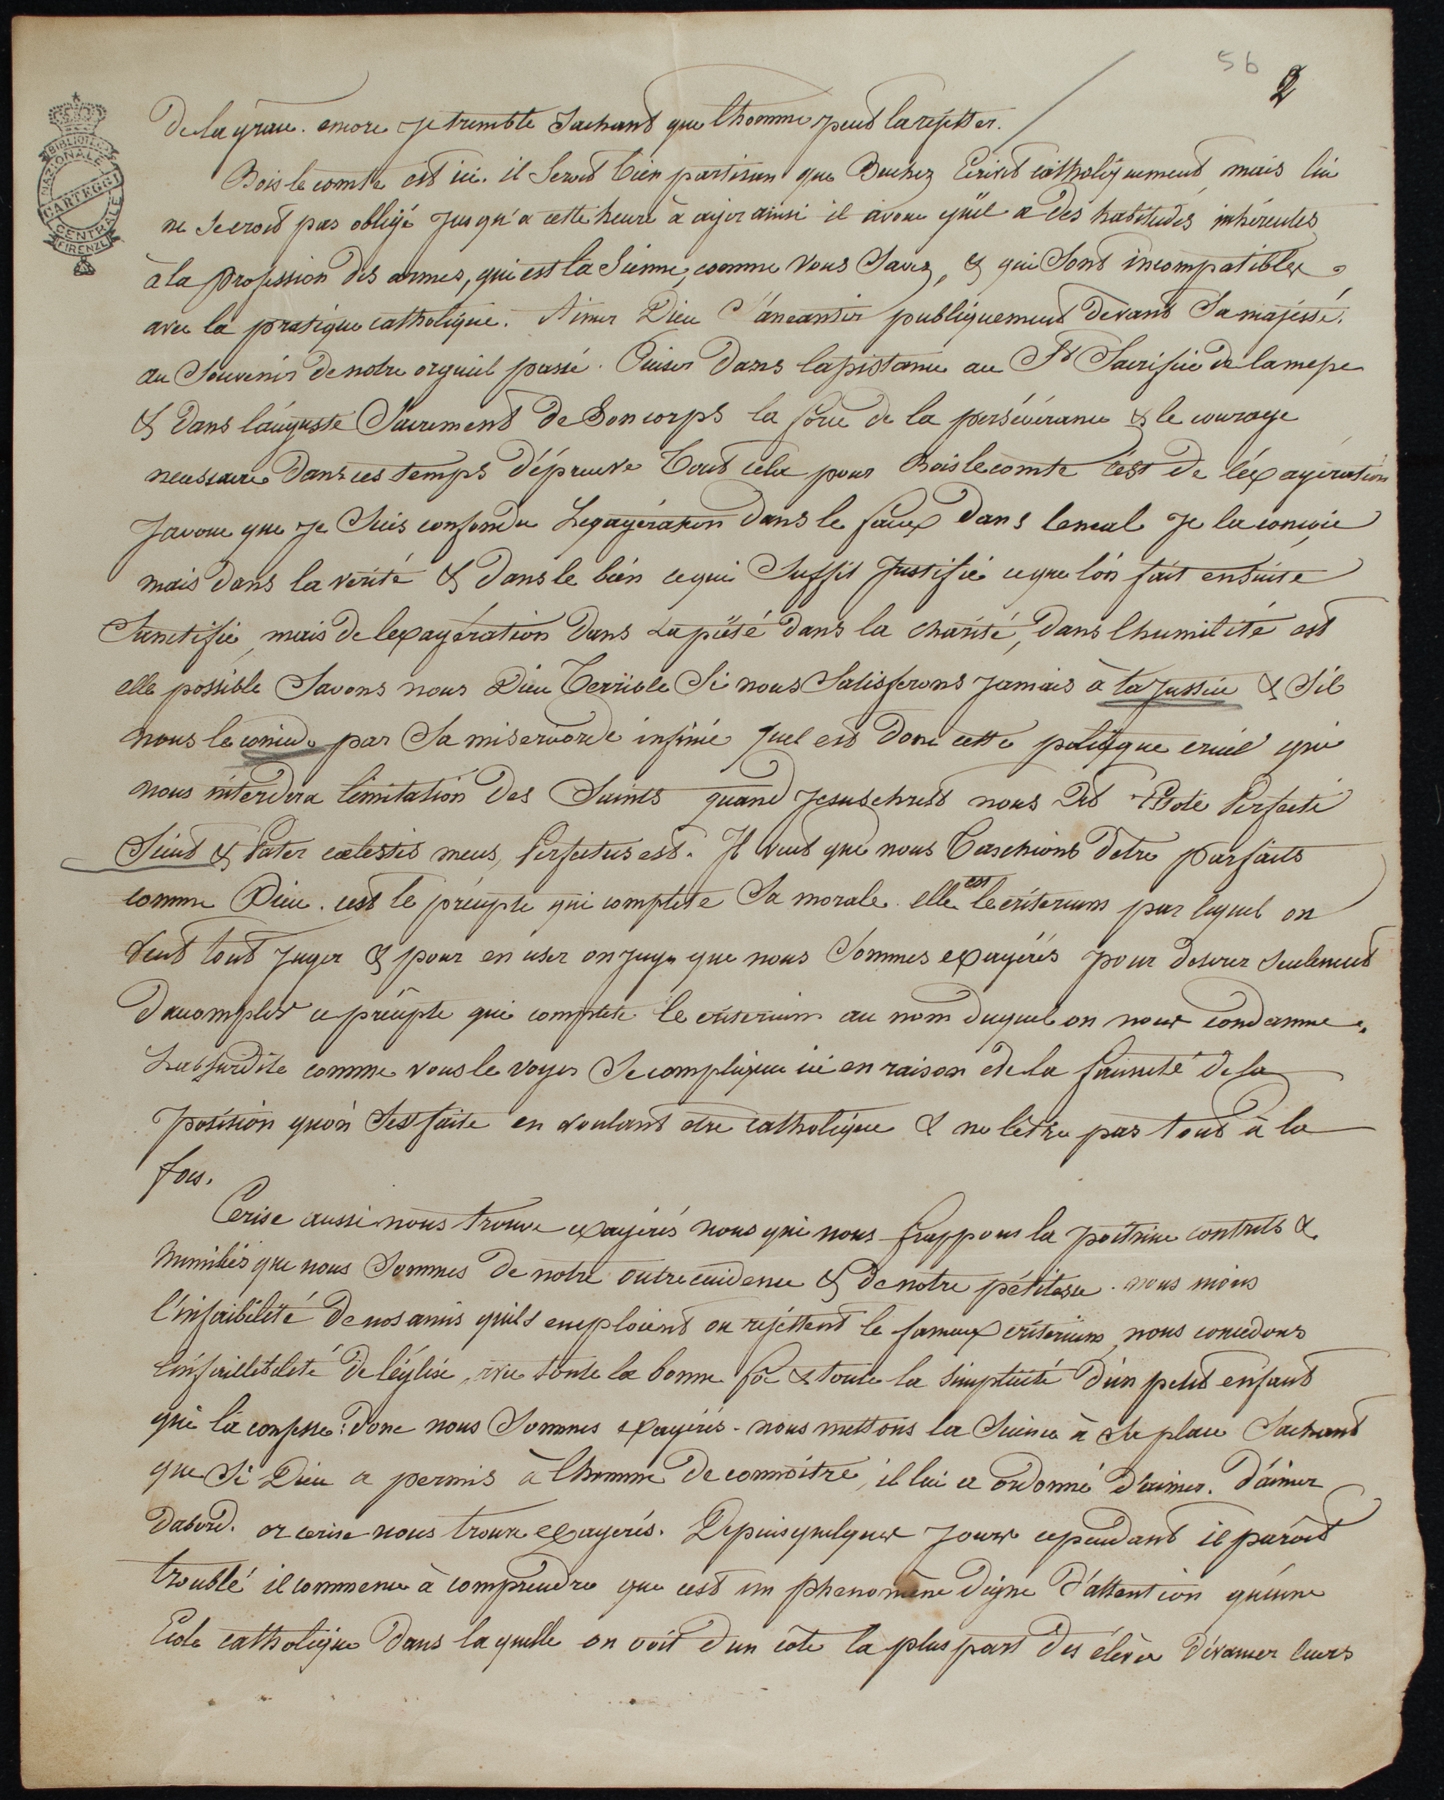 56 2
BIBLIOTECA NAZIONALE CENTRALE FIRENZE CARTEGGI
De la grace. encore je tremble Sachant que l'homme peut la rejetter.
Bois le comte est ici. il Serait bien partisan que Buchez Ecrivit catholiquement, mais lui
ne Se croit pas obligé jusqu'a cette heure à agir ainsi il avoue qu'il a des habitudes inhérentes
à la profession des armes, qui est la Sienne, comme Vous Savez, & qui Sont incompatibles
avec la pratique catholique. Aimer Dieu S'aneantir publiquement devant Sa majesté.
au Souvenir de notre orgueil passé. Puiser dans au St Sacrifice de la messe
& dans l'auguste Sacrement de Son corps la force de la persévérance & le courage
necessaire dans ces temps d'épreuve Tout cela pour Bois le comte c'est de l'exagération
J'avoue que je Suis confondu L'exagération dans le faux dans le mal je la conçois
mais dans la verité & dans le bien ce qui Suffit justifie ce que l'on fait ensuite
Sanctifie, mais de l'exagération dans la piété dans la charité, dans l'humilité est
elle possible Savons nous Dieu Terrible Si nous Satisferons jamais à ta justice & S'il
nous le par Sa misericorde infinie quel est donc cette politique cruel qui
nous interdira l'imitation des Saints quand Jesus christ nous dit Estote Perfecti
Sicut & Pater cœlestis meus, Perfectus est. Il veut que nous Taschions d'etre parfaits
comme Dieu. c'est le précepte qui complete Sa morale. elle est le criterium par lequel on
veut tout juger & pour en user on juge que nous Sommes exagérés pour desirer seulement
d'accomplir ce précepte qui complete le criterium au nom duquel on nous condamne.
L'absurdité comme vous le voyez Se complique ici en raison de la fausseté de la
position qu'on S'est faite en voulant etre catholique & ne l'etre pas tout à la
fois.
Cerise aussi nous trouve exagérés nous qui nous frappons la poitrine contrits &
humiliés que nous Sommes de notre outrecuidance & de notre pétitesse. nous nions
l'infaibilité de nos amis qu'ils emploient ou rejéttent le fameux criterium, nous concedons
l'infaillibilité de l'église, avec toute la bonne foi & toute la simplicité d'un petit enfant
qui la confesse: donc nous Sommes exagérés. nous mettons la Science à Sa place Sachant
que Si Dieu a permis à l'homme de connoitre, il lui a ordonné d'aimer. d'aimer
d'abord. or cerise nous trouve exagerés. Depuis quelques jours cependant il paroit
troublé il commence à comprendre que c'est un phenomène digne d'attention qu'une
Ecole catholique dans laquelle on voit d'un coté la plus part des élèves dévancer leurs